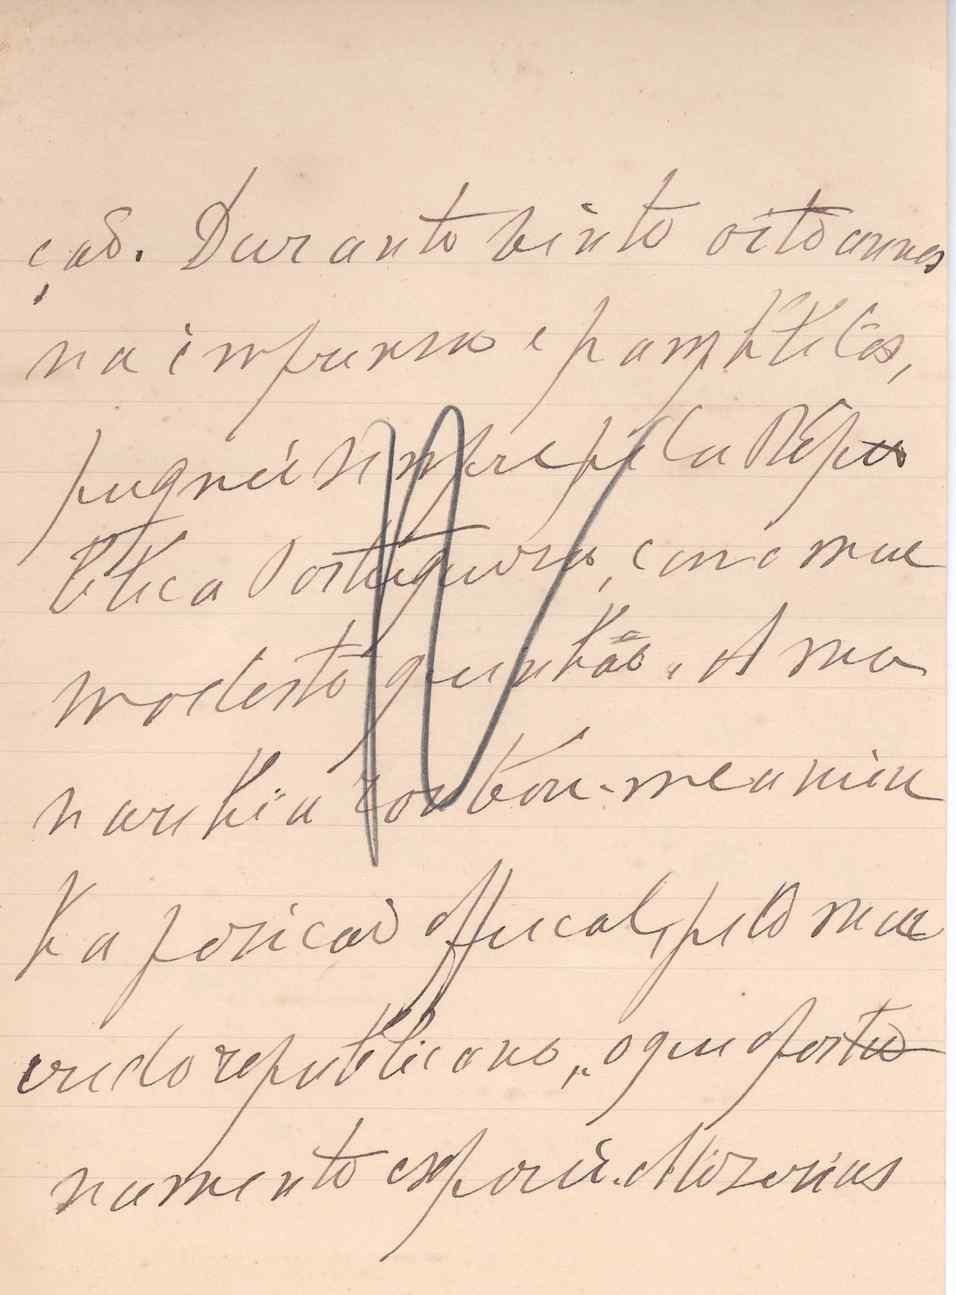 ção. Durante vinte oito annos
na imprensa e pamphletos,
pugnei sempre pela Repu
blica Portugueza, com o meu
modesto quinhão. A mo
narchia roubou-me a min
ha posicão official, pelo meu
credo republicano, o que oportu
namente exporei. Mizerias